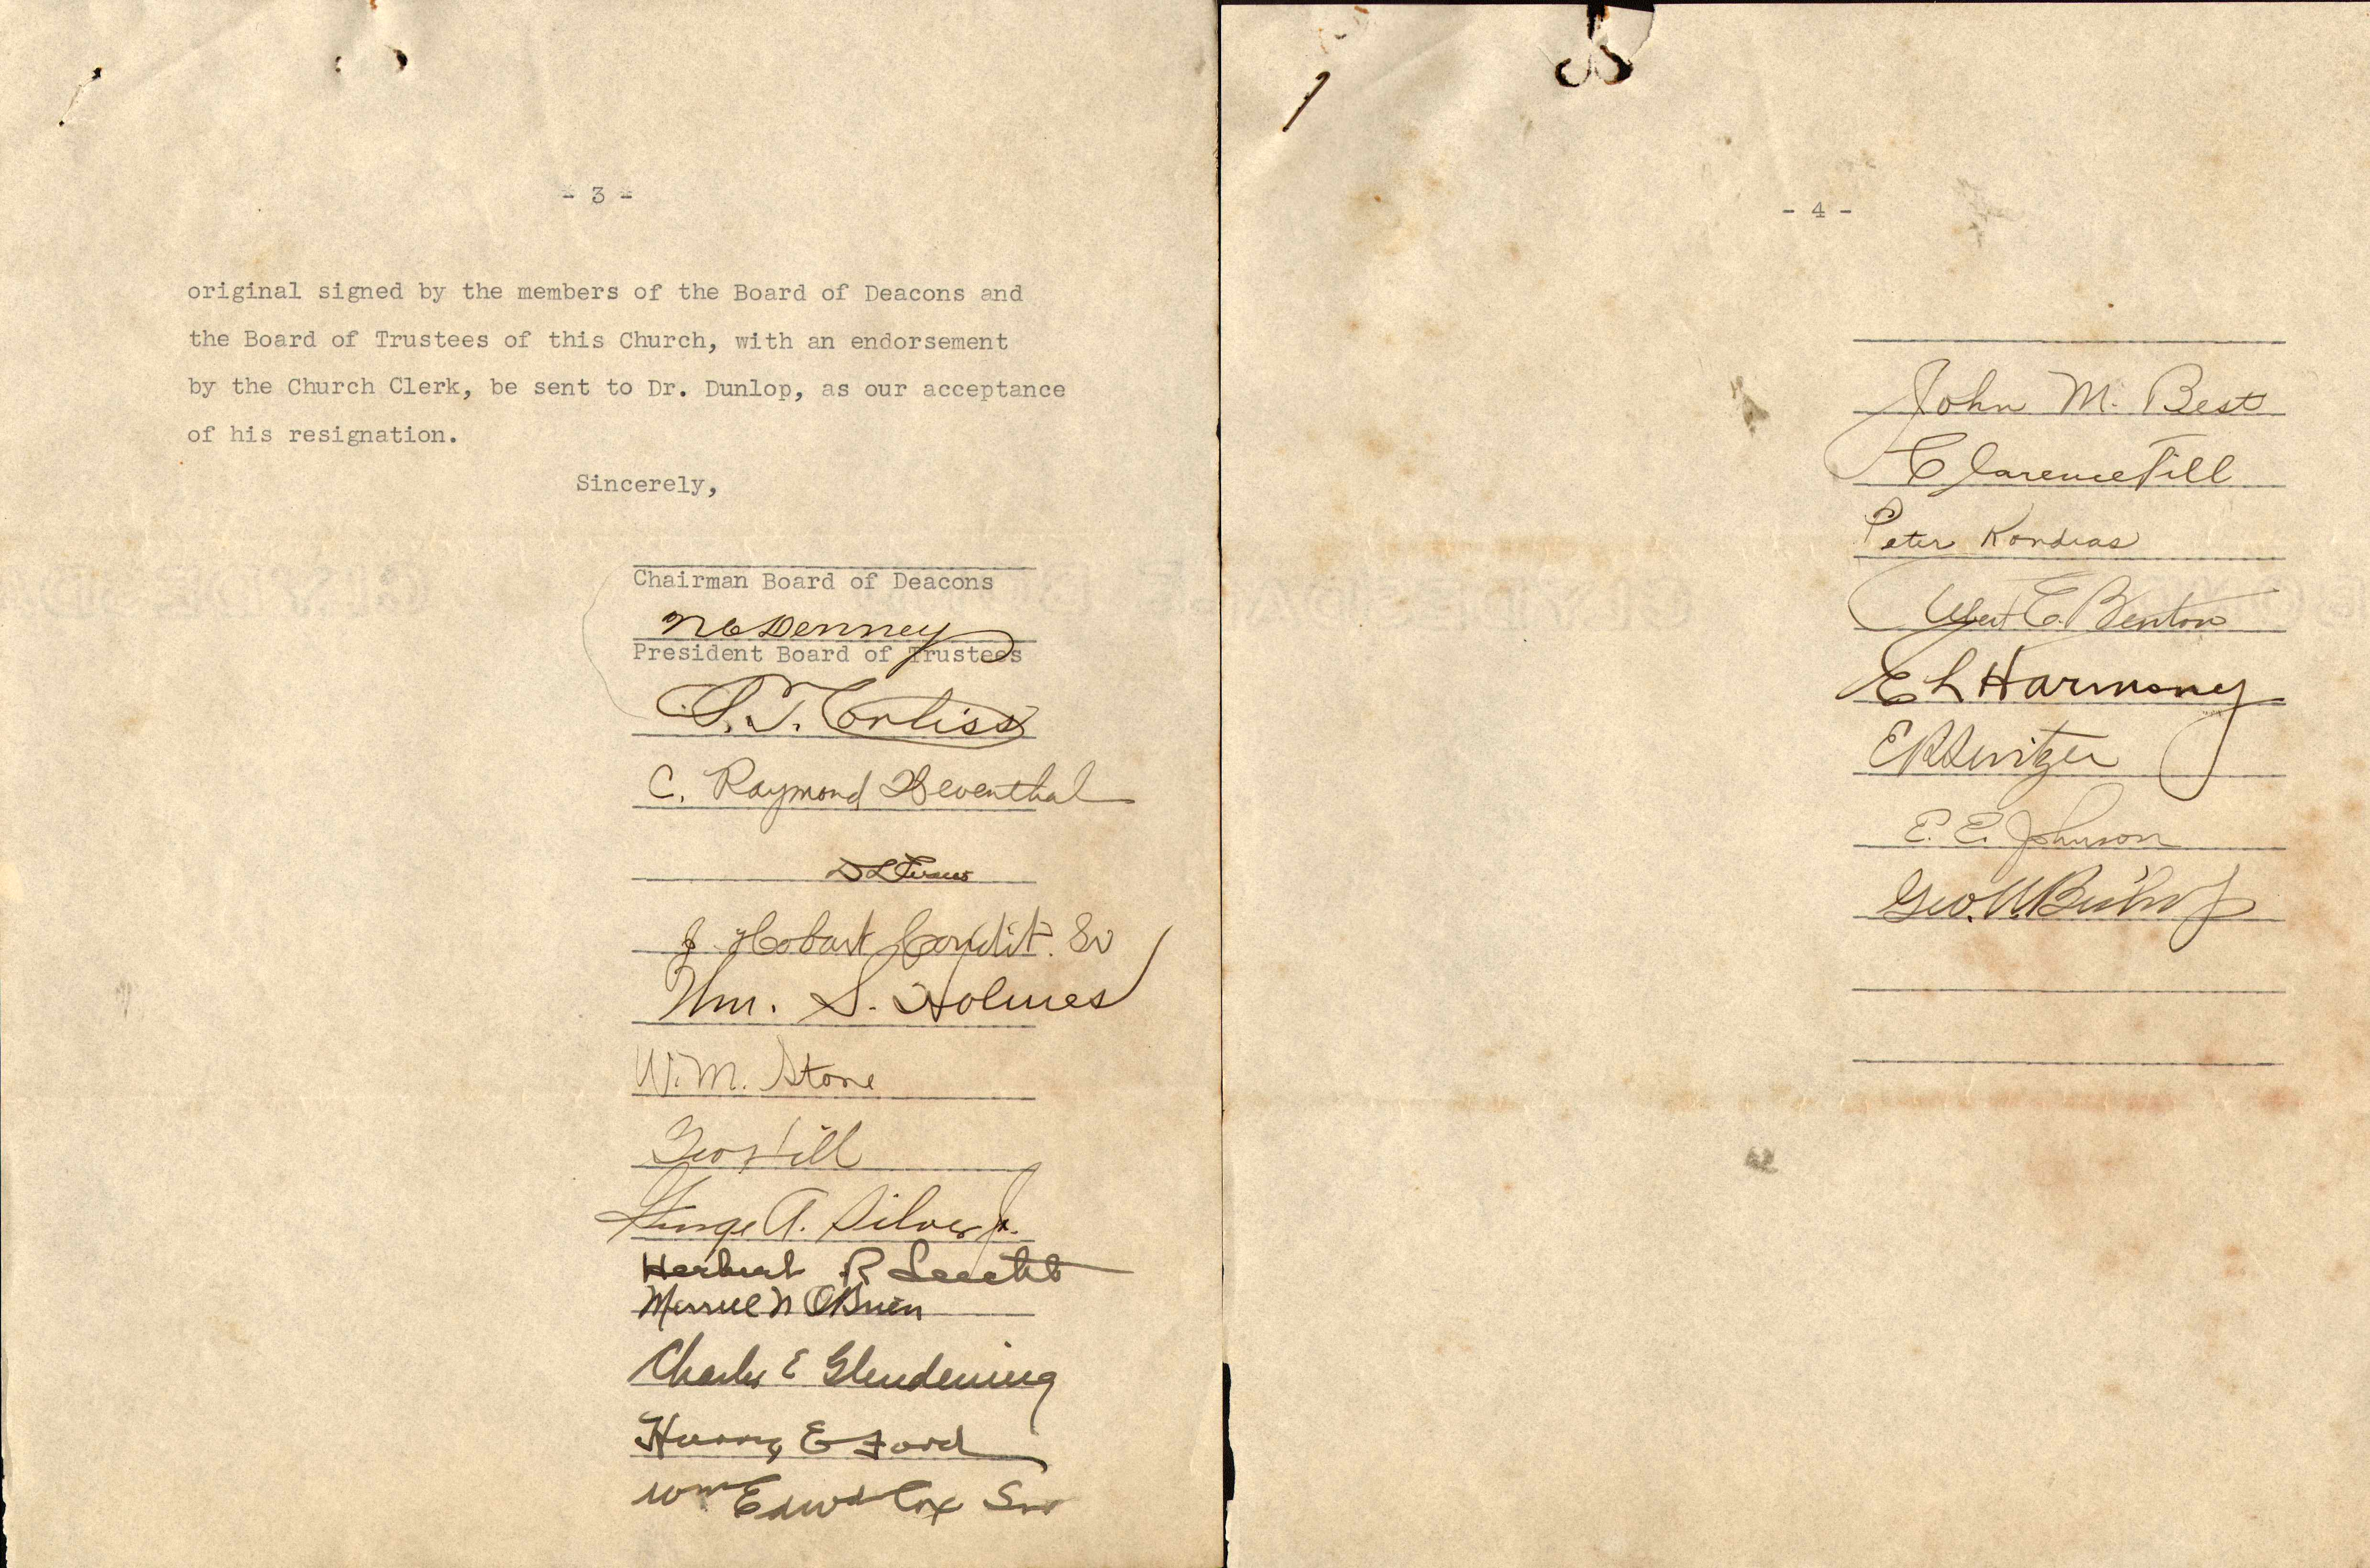 - 3 -
original signed by the members of the Board of Deacons and
the Board of Trustees of this Church, with an endorsement
by the Church Clerk, be sent to Dr. Dunlop, as our acceptance
of his resignation.
Sincerely,
Chairman Board of Deacons
Denney
President Board of Trustees
Corliss
C. Raymond Deventhal
D L
J Hobart Condit. Sr
Wm. S. Holmes
W. M. Stone
Geo Hill
George A. Silver Jr.
Herbert R
Merrill N O'Brien
Charles E Glendening
Harry E Ford
Wm Edwd Cox Snr
- 4 -
John M. Best
Clarence Till
Peter Kondras
Albert E. Benton
E L Harmony
E R
E. E. Johnson
Geo. W. Bishop